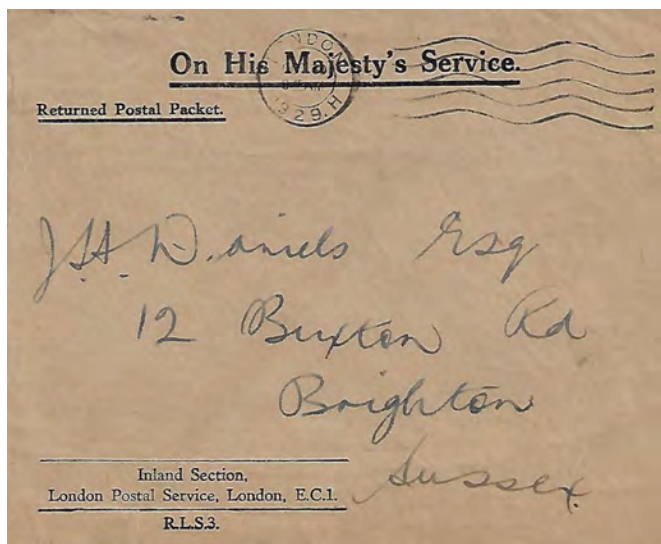 LONDON
On His Majesty's Service.
1929.H
Returned Postal Packet.
J.H. Daniels Esq
12 Buxton Rd
Brighton
Sussex.
Inland Section,
London Postal Service, London, E.C.1.
R.L.S.3.